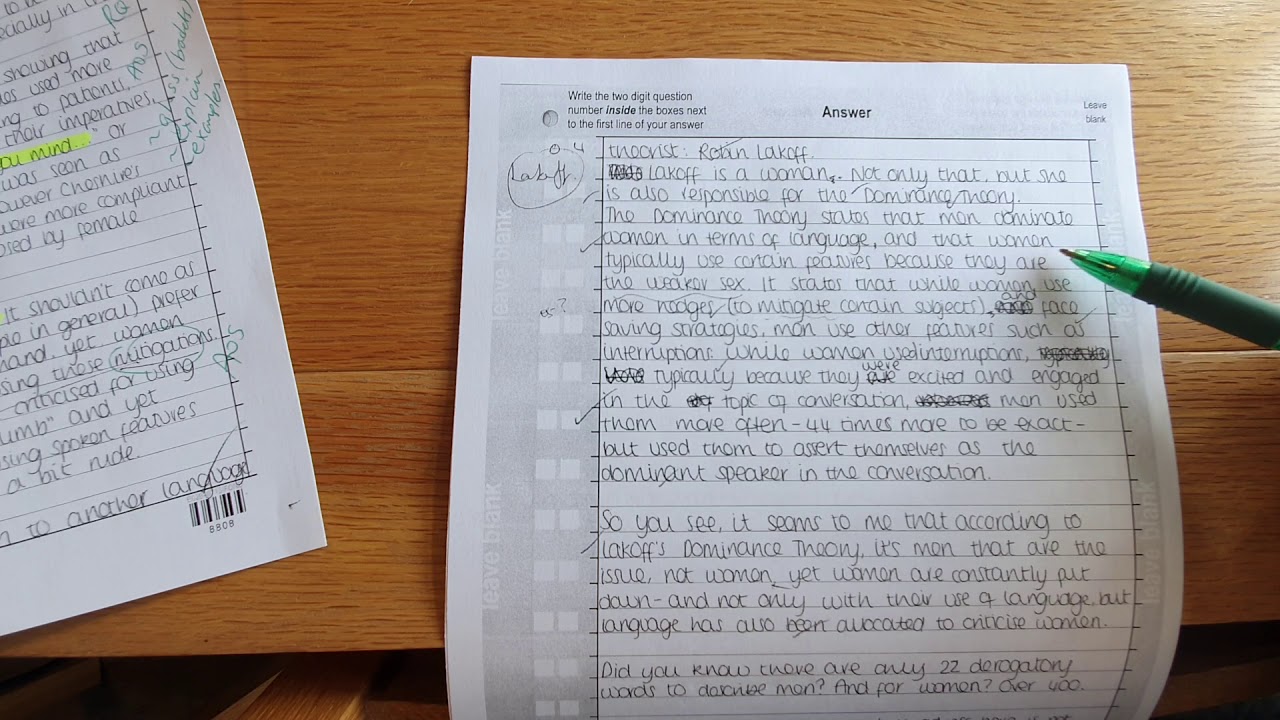 especially in
RQ
showing that
used more
ing to patrons,
AOS
their imperatives,
you mind..." or
was seen as
owever Cheshires
were more compliant
osed by female
explain
examples
it shouldn't come as
in general) prefer
hand, yet, women
using these mitigations
criticised for using
umb" and yet
using spoken features
a bit rude.
AOS
to another language
8808
Write the two digit question
number inside the boxes next
to the first line of your answer
Answer
Leave
blank
0 4
Lakoff
theorist: Robin Lakoff.
Lakoff is a woman. Not only that, but she
is also responsible for the Dominance Theory.
The Dominance Theory states that men dominate
women in terms of language, and that women
typically use certain features because they are
the weaker sex. It states that while women use
more hedges (to mitigate certain subjects), and face
saving strategies, men use other features such as
interruptions. While women used interruptions,
typically because they were excited and engaged
in the topic of conversation, men used
them more often - 44 times more to be exact -
but used them to assert themselves as the
dominant speaker in the conversation.
So you see, it seems to me that according to
Lakoff's Dominance Theory, it's men that are the
issue, not women, yet women are constantly put
down - and not only with their use of language, but
language has also been allocated to criticise women.
Did you know there are only 22 derogatory
words to describe men? And for women? Over 400.
leave blank
leave blank
leave blank
leave blank